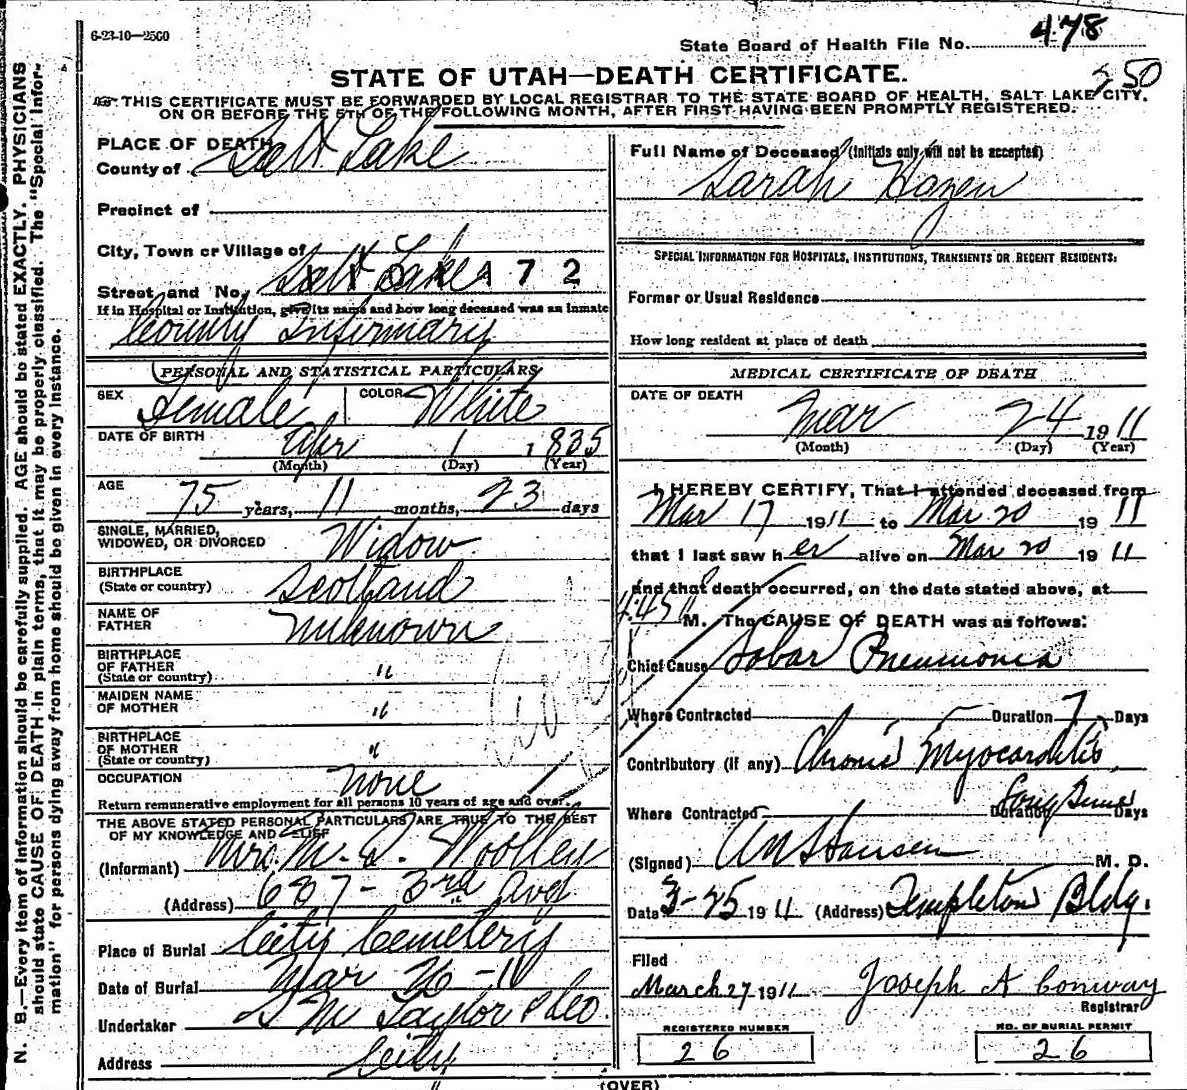 6-23-10-2500
State Board of Health File No. 478
350
STATE OF UTAH—DEATH CERTIFICATE.
THIS CERTIFICATE MUST BE FORWARDED BY LOCAL REGISTRAR TO THE STATE BOARD OF HEALTH, SALT LAKE CITY,
ON OR BEFORE THE 5TH OF THE FOLLOWING MONTH, AFTER FIRST HAVING BEEN PROMPTLY REGISTERED.
N. B.—Every item of information should be carefully supplied. AGE should be stated EXACTLY. PHYSICIANS
should state CAUSE OF DEATH in plain terms, that it may be properly classified. The "Special Infor-
mation" for persons dying away from home should be given in every instance.
PLACE OF DEATH
County of Salt Lake
Precinct of
City, Town or Village of
Street and No. Salt Lake 1 7 2
If in Hospital or Institution, give its name and how long deceased was an inmate
County Infirmary
PERSONAL AND STATISTICAL PARTICULARS
SEX Female COLOR White
DATE OF BIRTH Apr 1 1835
(Month) (Day) (Year)
AGE 75 years, 11 months, 23 days
SINGLE, MARRIED,
WIDOWED, OR DIVORCED Widow
BIRTHPLACE
(State or country) Scotland
NAME OF
FATHER Unknown
BIRTHPLACE
OF FATHER
(State or country) "
MAIDEN NAME
OF MOTHER "
BIRTHPLACE
OF MOTHER
(State or country) "
OCCUPATION none
Return remunerative employment for all persons 10 years of age and over.
THE ABOVE STATED PERSONAL PARTICULARS ARE TRUE TO THE BEST
OF MY KNOWLEDGE AND BELIEF
(Informant) Mrs. M. D. Woolley
(Address) 687 - 3rd Ave
Place of Burial City Cemetery
Date of Burial Mar 26 - 11
Undertaker S M Taylor & Co.
Address City
Full Name of Deceased (initials only will not be accepted)
Sarah Hazen
SPECIAL INFORMATION FOR HOSPITALS, INSTITUTIONS, TRANSIENTS OR RECENT RESIDENTS:
Former or Usual Residence
How long resident at place of death
MEDICAL CERTIFICATE OF DEATH
DATE OF DEATH
Mar 24 1911
(Month) (Day) (Year)
I HEREBY CERTIFY, That I attended deceased from
Mar 17 1911 to Mar 20 1911
that I last saw her alive on Mar 20 1911
and that death occurred, on the date stated above, at
4:45 M. The CAUSE OF DEATH was as follows:
Chief Cause Lobar Pneumonia
Where Contracted Duration 7 Days
Contributory (if any) Chronic Myocarditis.
Where Contracted Duration Long time Days
(Signed) A N Hansen M. D.
Date 3-25 1911 (Address) Templeton Bldg.
Filed
March 27 1911 Joseph A Conway
Registrar
REGISTERED NUMBER
26
NO. OF BURIAL PERMIT
26
(OVER)